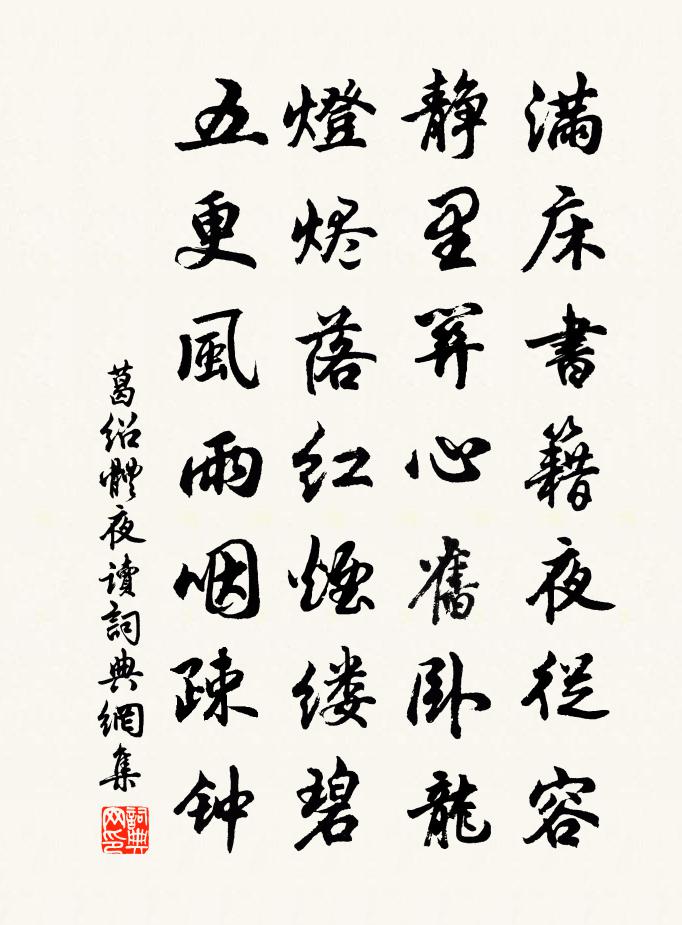 滿床書籍夜從容
靜里筭心舊卧龍
燈烬落红煙缕碧
五更風雨咽疎钟
葛绍體夜讀詞典網集
詞典网印